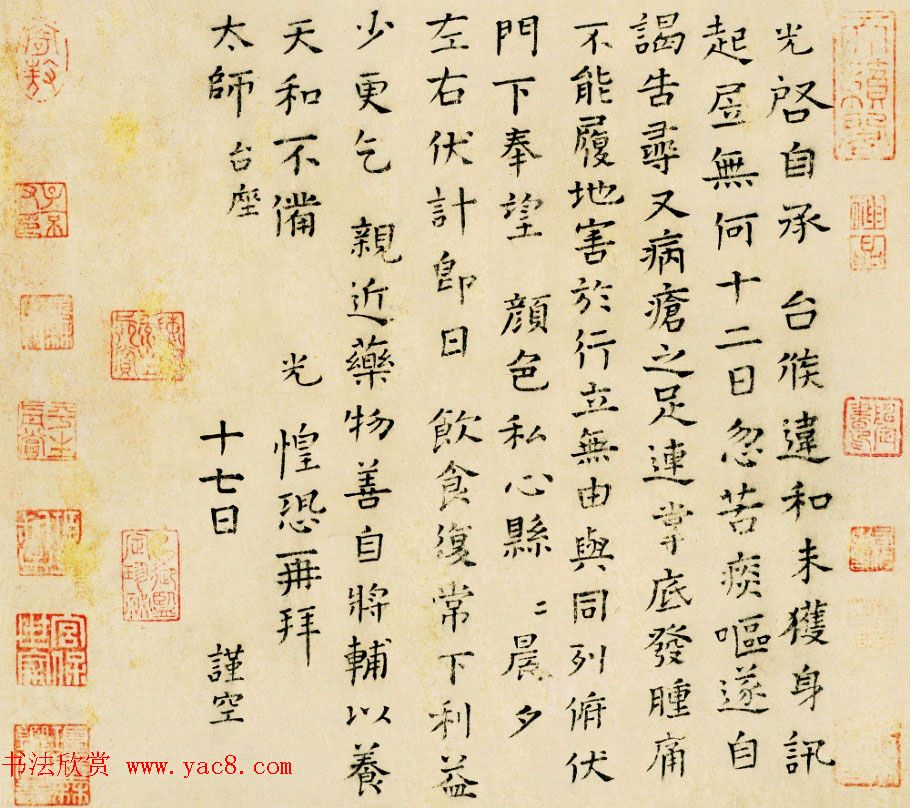 光啓自承　台候違和未獲身訊
起居無何十二日忽苦痰嘔遂自
謁告尋又病瘡之足連掌底發腫痛
不能履地害於行立無由與同列俯伏
門下奉望　顔色私心縣〻晨夕
左右伏計即日　飲食復常下利益
少更乞　親近藥物善自將輔以養
天和不備　光　惶恐再拜
太師　台座
十七日　謹空
书法欣赏 www.yac8.com